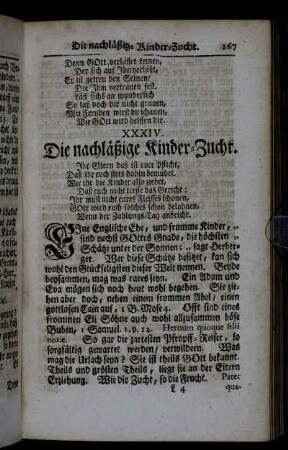 Die nachläßige Kinder-Zucht. 167
Denn GOtt verlässet keinen,
Der sich auf Ihn verläßt,
Er ist getreu den Seinen,
Die Ihm vertrauen fest.
Läst sichs an wunderlich
So laß doch dir nicht grauen,
Mit Freuden wirst du schauen,
Wie GOtt wird helffen dir.
XXXIV.
Die nachläßige Kinder-Zucht.
Ihr Eltern daß ist euer Pflicht,
Daß ihr euch stets dahin bemühet,
Wie ihr die Kinder also ziehet,
Daß euch nicht treffe das Gericht:
Ihr müst nicht eures Fleisses schonen,
GOtt wird euch solches schon belohnen,
Wenn der Zahlungs-Tag anbricht.
EIne Englische Ehe, und fromme Kinder,
sind nechst GOttes Gnade, die höchsten
Schätze unter der Sonnen: sagt Herber-
ger. Wer diese Schätze besitzet, kan sich
wohl den Glückseligsten dieser Welt nennen. Beyde
beysammen, mag was rares seyn. Ein Adam und
Eva mögen sich noch heut wohl begehen. Sie zie-
hen aber doch, neben einem frommen Abel, einen
gottlosen Cain auf, 1 B. Mose 4. Offt sind eines
frommen Eli Söhne auch wohl allzusammen böse
Buben, 1 Samuel. 2. v. 12. Heroum quoque filii
noxæ. So gar die zartesten Pfropff-Reiser, so
sorgfältig gewartet werden, verwildern. Was
mag die Ursach seyn? Sie ist theils GOtt bekannt.
Theils und grösten Theils, liegt sie an der Eltern
Erziehung. Wie die Zucht, so die Frucht. Pater
L 4 qua-